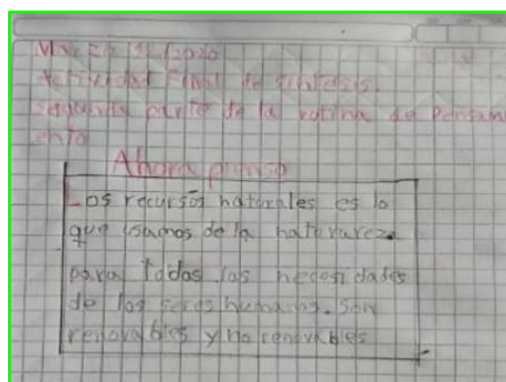 Actividad Final de sintesis.
segunda parte de la rutina de Pensam
ento
Ahora pienso
Los recursos naturales es lo
que usamos de la naturareza
para todas las necesidades
de los seres humanos. Son
renovables y no renovables